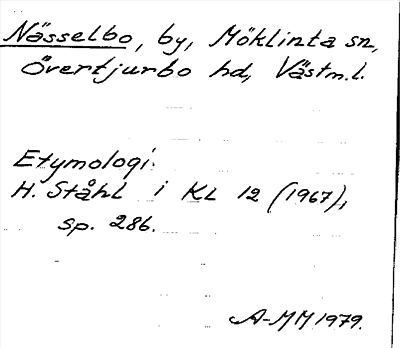 Nässelbo, by, Möklinta sn,
Övertjurbo hd, Västm.l.
Etymologi:
H. Ståhl i KL 12 (1967),
sp. 286.
A-MM 1979.